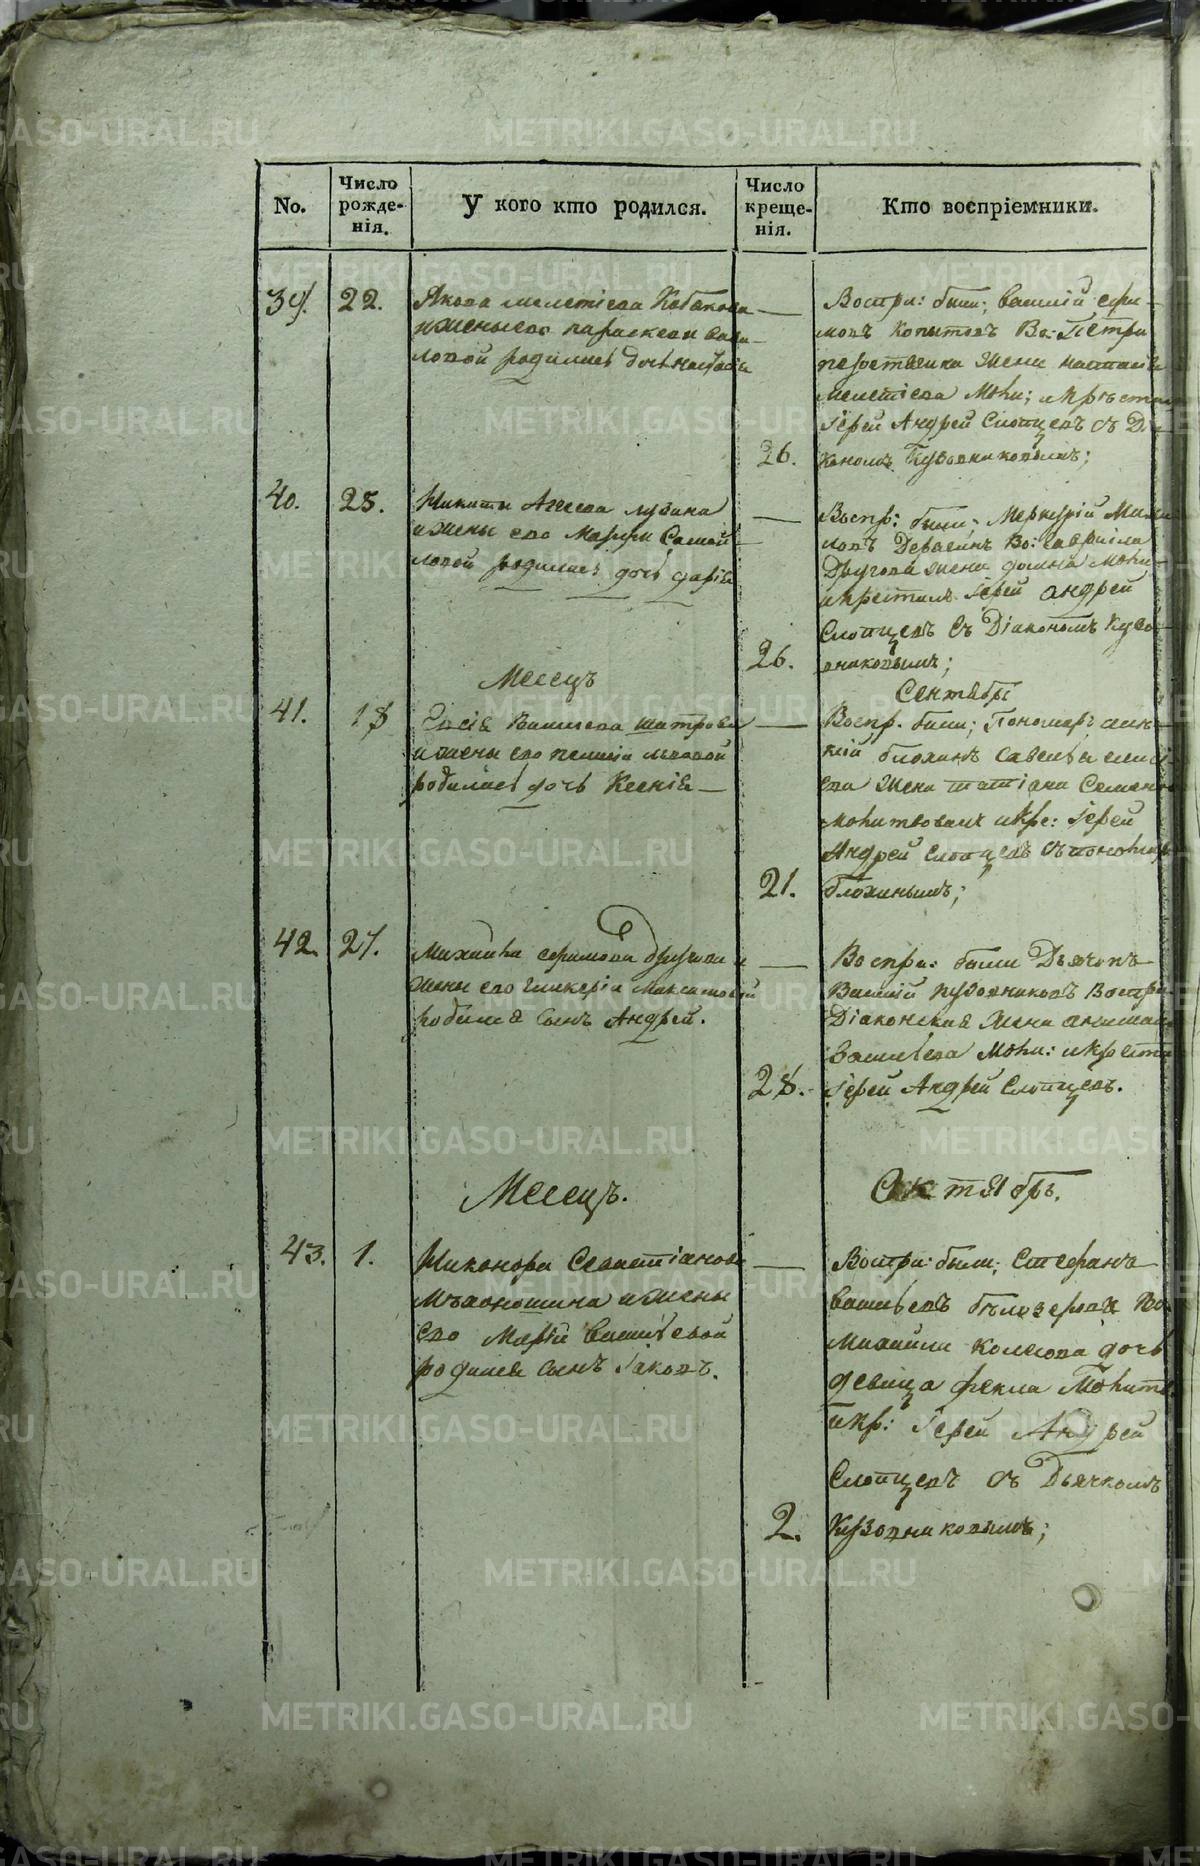 No.
Число рожде- нія.
У кого кто родился.
Число креще- нія.
Кто воспріемники.
39. 22.
Якова мелетіева Кабакова
и жены его параскеви
родилась дочь
Воспри: были; василій ефи-
мовъ Копытовъ Во: Петра
жены настасія
мелетіева Моли; и крѣстилъ
іерей Андрей Слопцовъ съ Ді-
26. кономъ Кузовниковымъ;
40. 25.
Никиты Агеева лузина
и жены его Марфи Самой
ловой родилась дочь дарія
Воспр: были; Меркурій
Во: гавріила
Другова жена домна Моли
и крестилъ іерей андрей
Слопцовъ съ Діакономъ Кузо-
26. вниковымъ;
Месецъ Сентябрь
41. 18
василева шатрова
и жены его львовой
родилась дочь Ксенія
Воспр. были; Пономарь
блохинъ савелья елисі-
ева жена татіана Семено
молитвовалъ и кре: іерей
Андрей Слопцовъ съ пономар
21. блохинымъ;
42. 27.
Михаила ефимова другова и
жены его гликеріи Максимовой
родился сынъ Андрей.
Воспри: были Дьячекъ
Василій кузовниковъ Воспри
Діаконская жена
василіева Моли: и крести
28. іерей Андрей Слопцовъ.
Месецъ. Октябрь.
43. 1.
Никонора Севастіанова
и жены
его Маріи василіевой
родился сынъ іаковъ.
Воспри: были; Стефанъ
василіевъ бѣлозеровъ Во.
Михаила Колесова дочь
девица фекла Молитв
и кр: іерей Андрей
Слопцовъ съ Дьячкомъ
2. Кузовниковымъ;
METRIKI.GASO-URAL.RU